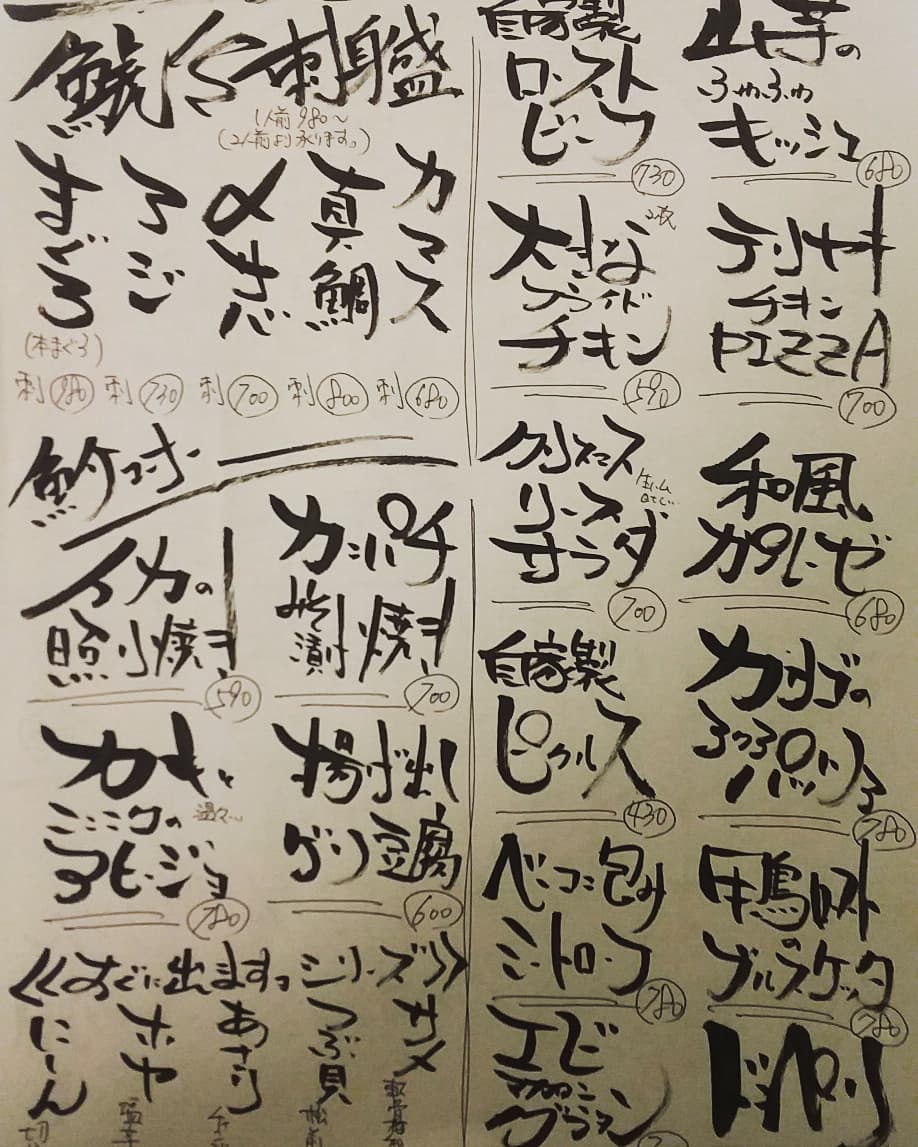 刺身盛
1人前 980〜
(2人前より承ります。)
まぐろ
(本まぐろ)
刺 980
アジ
刺 730
〆さば
刺 700
真鯛
刺 800
カマス
刺 680
コーナー
イカの
照り焼き
590
カンパチ
みそ漬け焼き
700
カキと
キノコの
アヒージョ
780
揚げ出し
豆腐
600
≪すぐに出ますっシリーズ≫
にしん
ホヤ
あさり
つぶ貝
サメ
自家製
ローストビーフ
730
大きな
2枚
フライド
チキン
590
クリスマス
リース
サラダ
700
自家製
ピクルス
430
ベーコン包み
ミートローフ
780
エビ
マカロニ
グラタン
山芋の
ふわふわ
キッシュ
680
テリヤキ
チキン
PIZZA
700
和風
カプレーゼ
680
780
鴨ロースト
の
ブルスケッタ
780